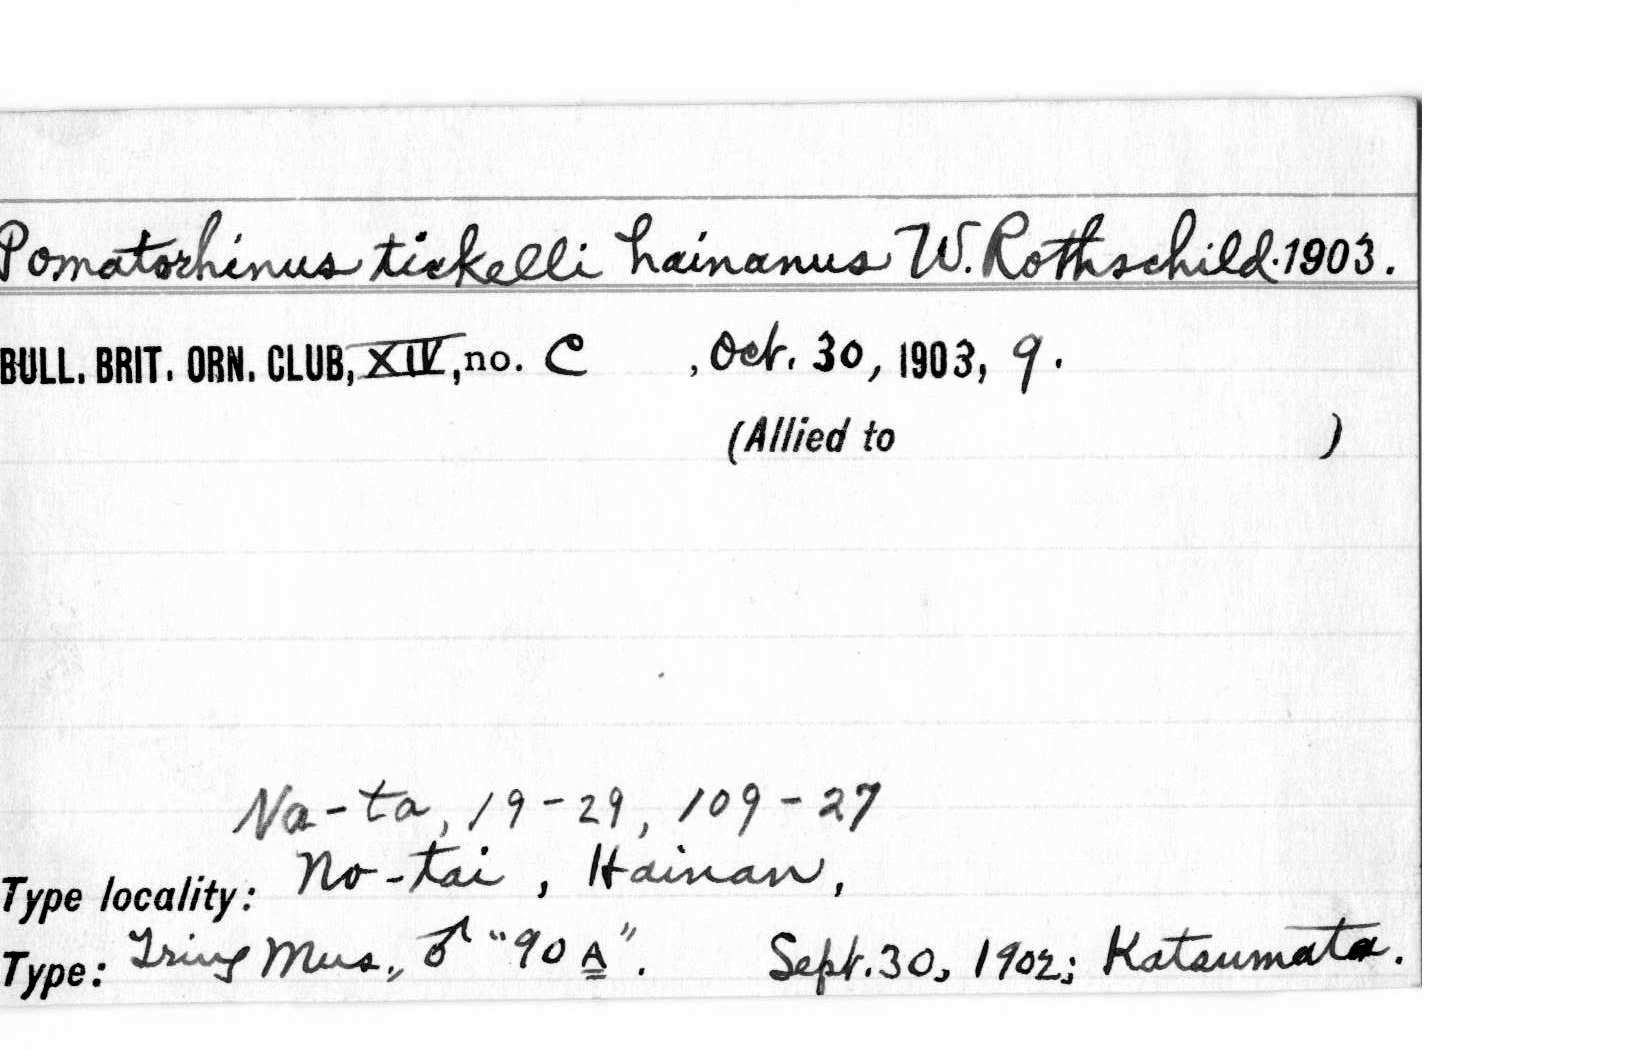 Pomatorhinus tickelli hainanus W. Rothschild. 1903.
BULL. BRIT. ORN. CLUB, XIV, no. C , Oct. 30, 1903, 9.
(Allied to )
Na-ta, 19-29, 109-27
Type locality: No-tai, Hainan,
Type: Tring Mus., ♂ "90 A". Sept. 30, 1902; Katsumata.